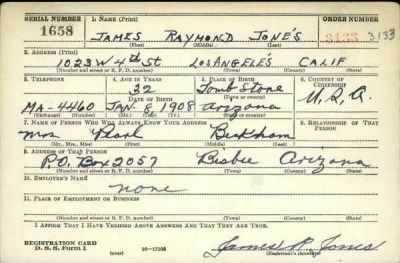 SERIAL NUMBER 1. NAME (Print) ORDER NUMBER
1658 JAMES RAYMOND JONE'S 3133 3133
(First) (Middle) (Last)
2. ADDRESS (Print)
1023 W 4th St LOS ANGELE'S CALIF
(Number and street or R. F. D. number) (Town) (County) (State)
3. TELEPHONE 4. AGE IN YEARS 5. PLACE OF BIRTH 6. COUNTRY OF CITIZENSHIP
32 Tomb Stone
DATE OF BIRTH (Town or county)
MA-4460 JAN. 8, 1908 Arizona U.S.A.
(Exchange) (Number) (Mo.) (Day) (Yr.) (State or country)
7. NAME OF PERSON WHO WILL ALWAYS KNOW YOUR ADDRESS 8. RELATIONSHIP OF THAT PERSON
Mrs Pearl Beckham
(Mr., Mrs., Miss) (First) (Middle) (Last)
9. ADDRESS OF THAT PERSON
P.O. Box 2057 Bisbee Arizona
(Number and street or R. F. D. number) (Town) (County) (State)
10. EMPLOYER'S NAME
none
11. PLACE OF EMPLOYMENT OR BUSINESS
(Number and street or R. F. D. number) (Town) (County) (State)
I AFFIRM THAT I HAVE VERIFIED ABOVE ANSWERS AND THAT THEY ARE TRUE.
REGISTRATION CARD
D. S. S. Form 1 (over) James R. Jones
(Registrant's signature)